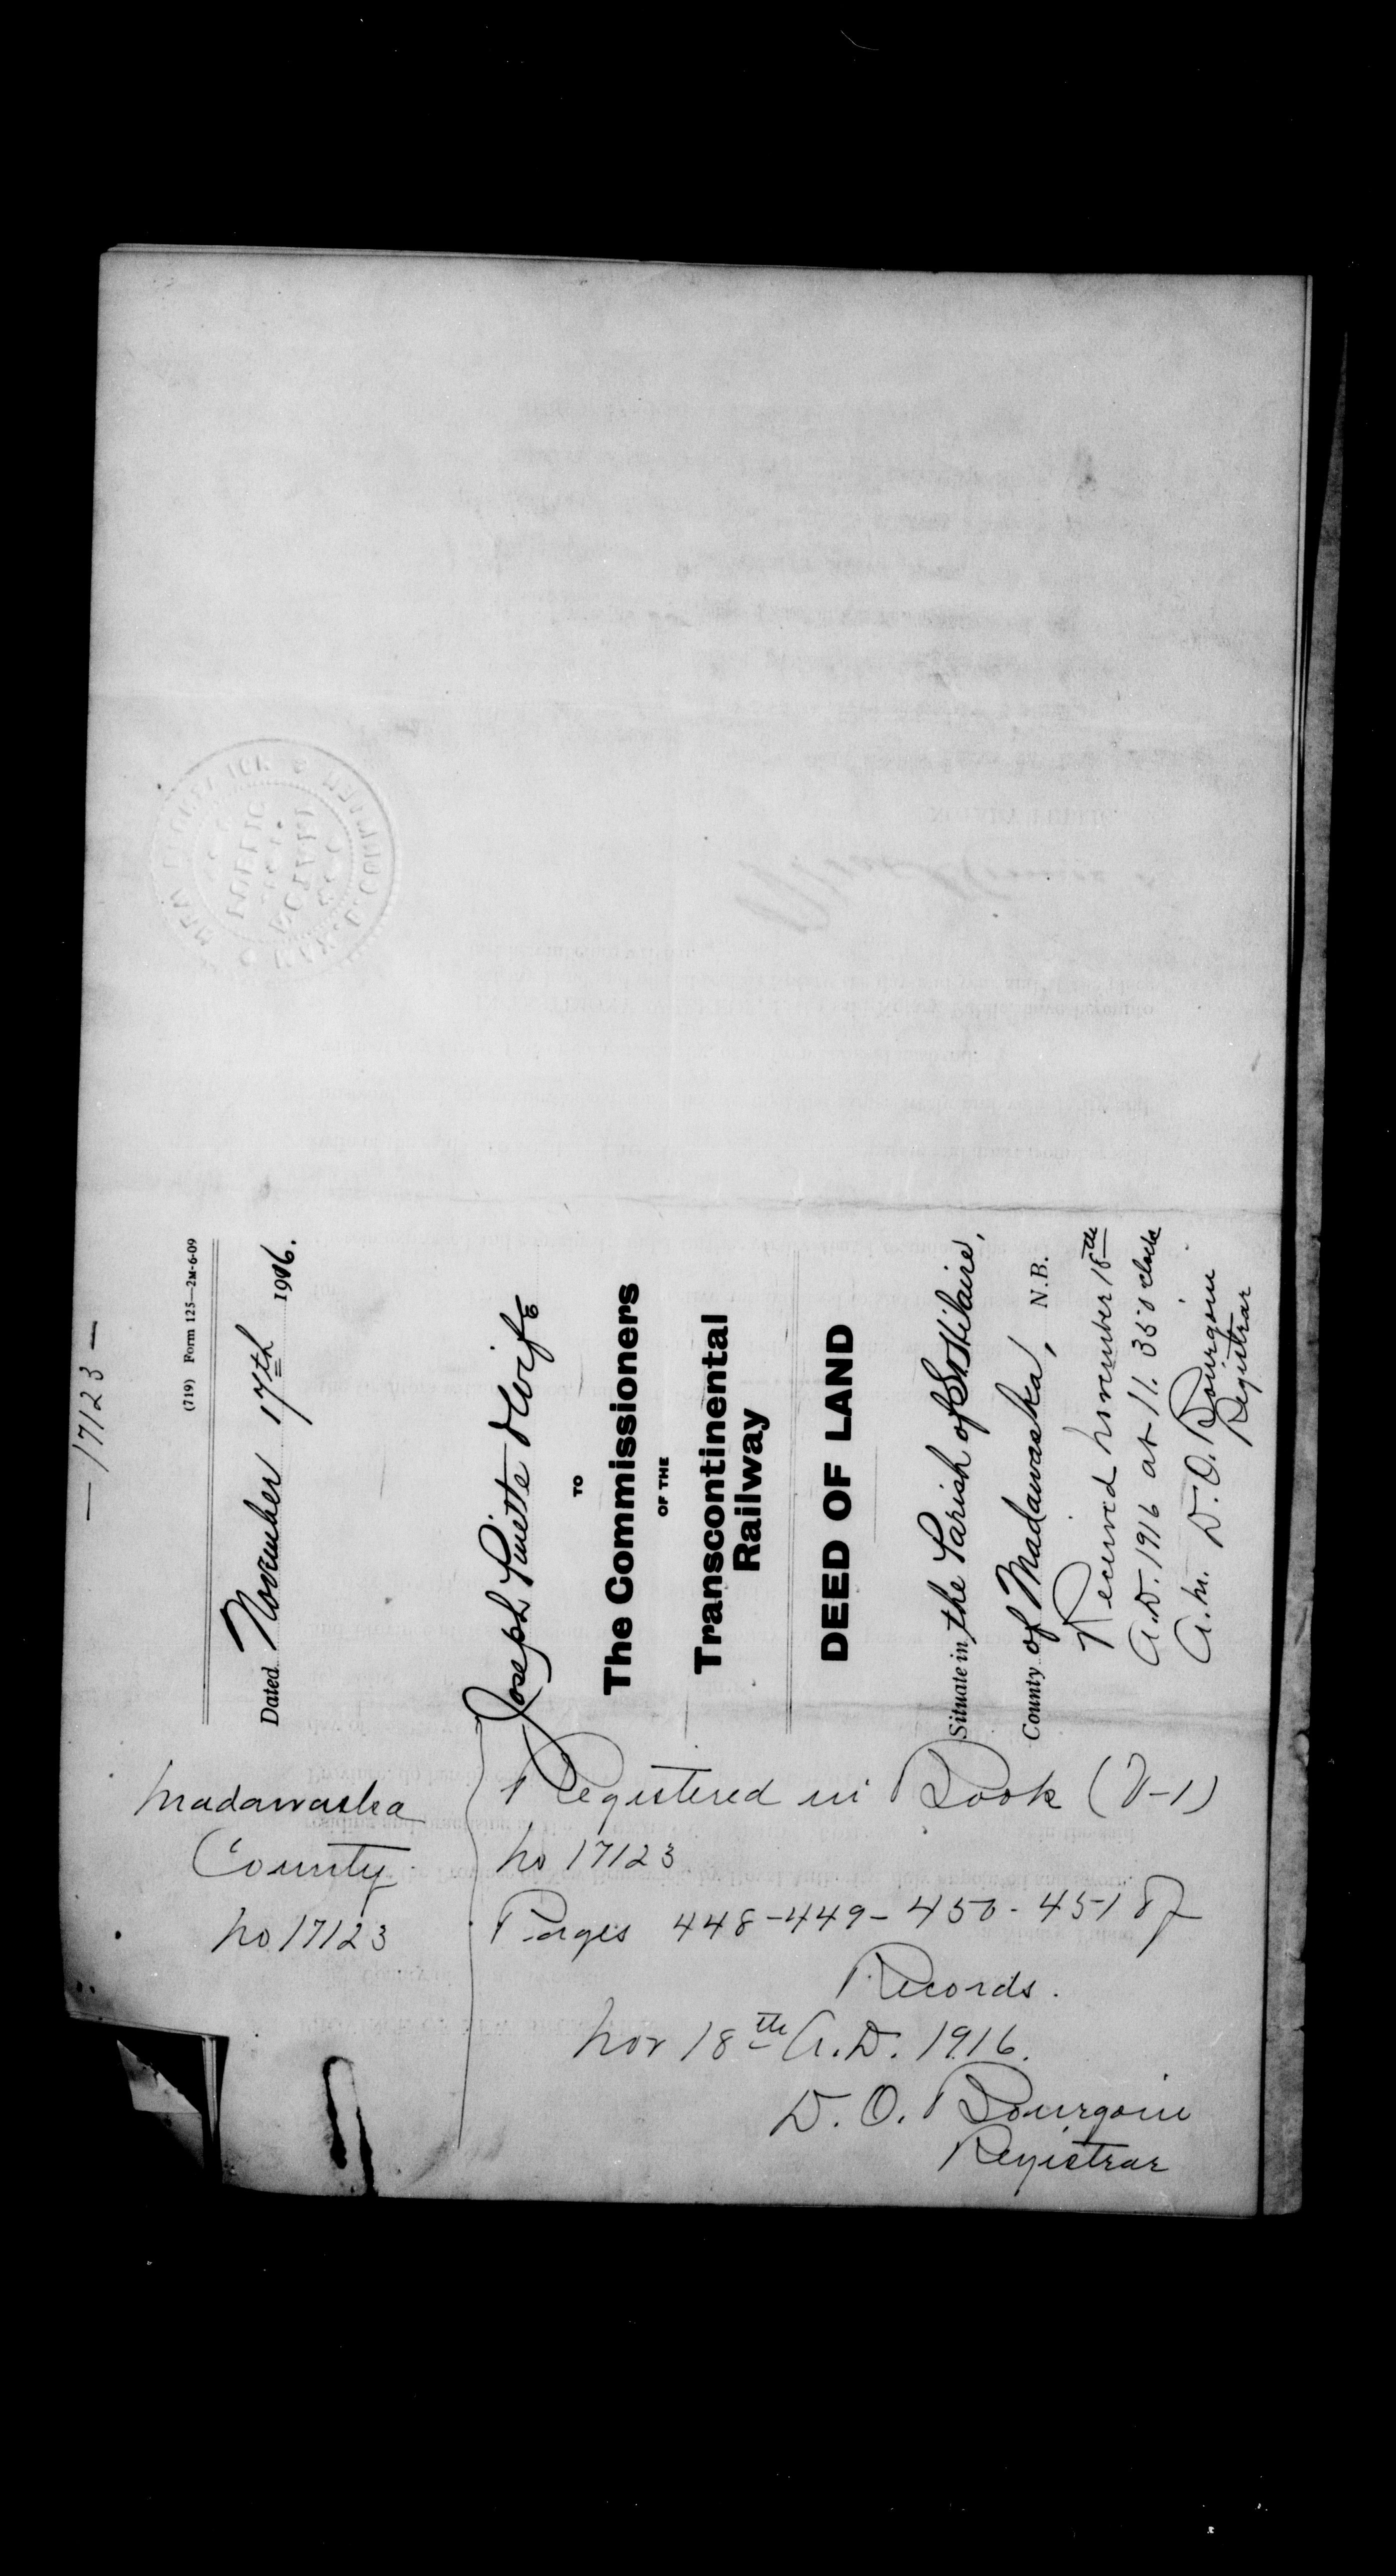 — 17123 —
(719) Form 125—2M-6-09
Dated November 17th 1916.
Joseph Pinette & Wife
TO
The Commissioners
OF THE
Transcontinental
Railway
DEED OF LAND
Situate in the Parish of St. Hilaire,
County of Madawaska, N.B.
Received November 18th
A.D. 1916 at 11.35 o'clock
A.M. D. O. Bourgoin
Registrar
Madawaska
County
No 17123
Registered in Book
No 17123
Pages 448-449-450-451 of
Records.
Nov 18th A.D. 1916.
D. O. Bourgoin
Registrar